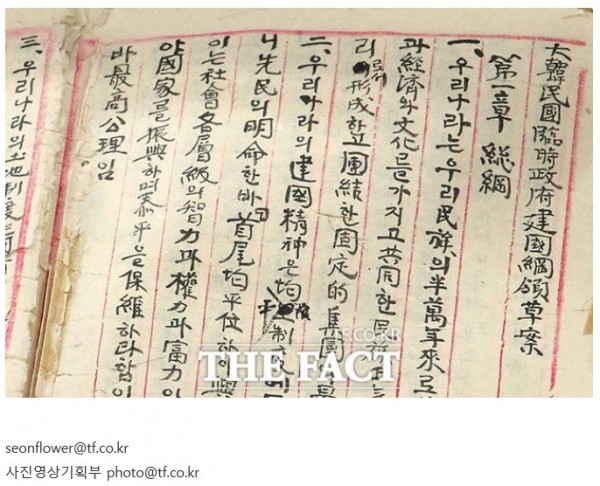 大韓民國臨時政府建國綱領草案
第一章 総綱
一、우리나라는 우리民族의 半萬年來로
과 經濟와 文化를 가지고 共同한
形成하고 團結한 固定的集團
二、우리나라의 建國精神은 均 制度에
니 先民의 明命한바 首尾均平位하
이는 社會各層級의 智力과 權力과 富力
야 國家를 振興하며 泰平을 保維하라 함이
바 最高公理임
三、우리나라의 土地制度는
TF.CO.KR
THE FACT
seonflower@tf.co.kr
사진영상기획부 photo@tf.co.kr